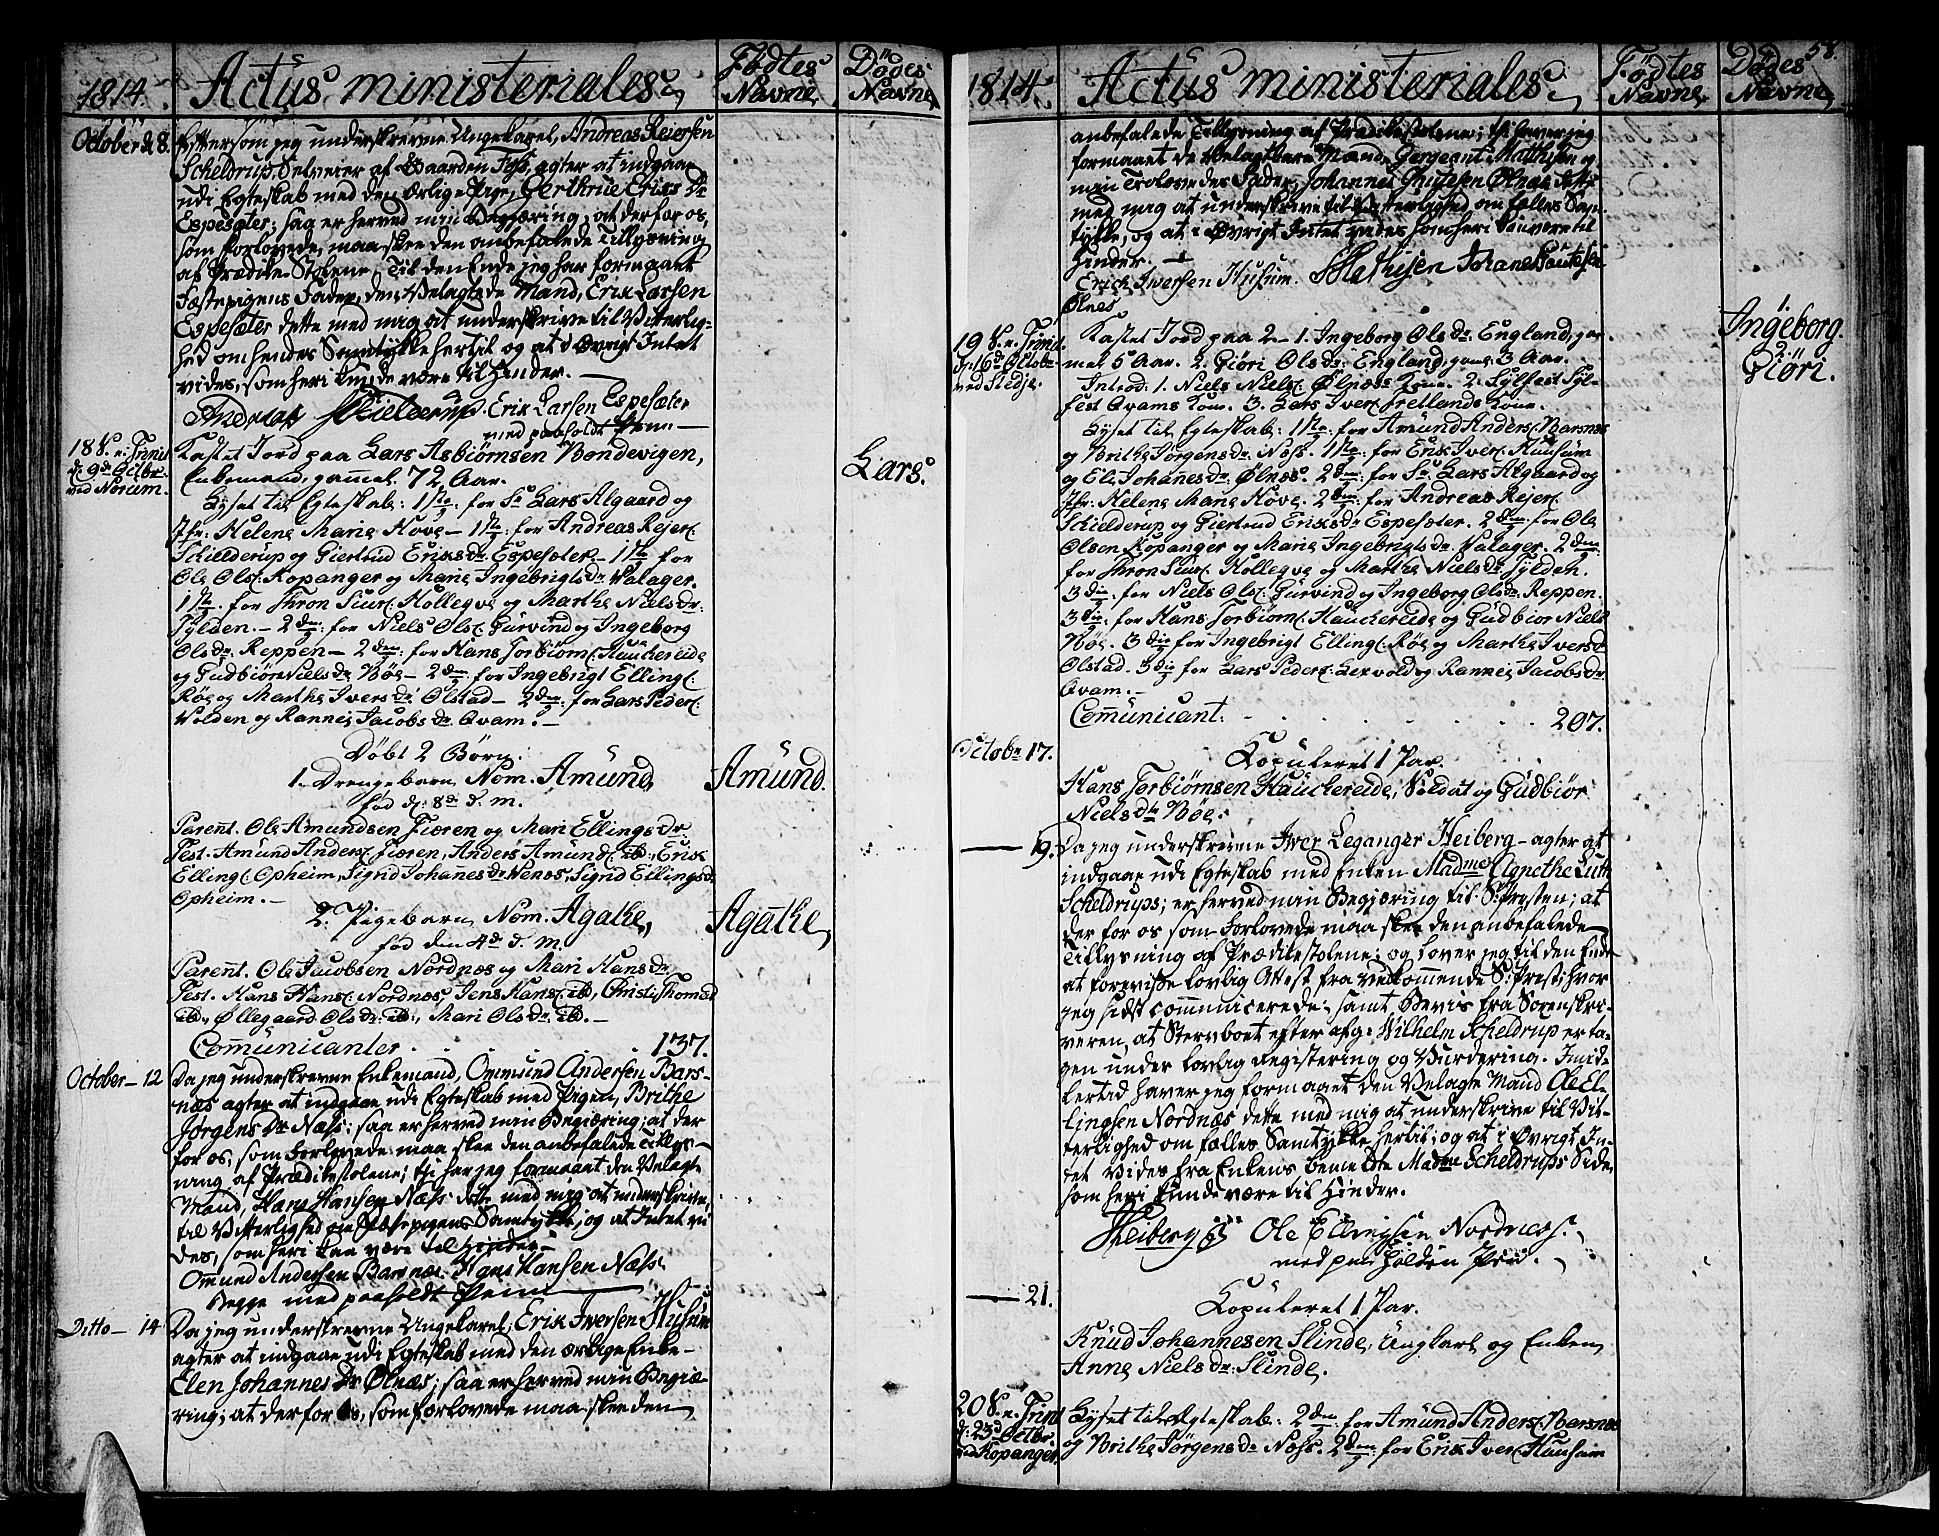 1814. Actus ministeriales. Fødtes Navne Dødes Navne
October d 8. Eftersom jeg underskrevne Ungekarel, Andreas Reiersen
Scheldrup, Selveier af Gaarden agter at indgaae
udi Egteskab med den ærlige Pige, Gerthrue Erics Dr
Espesæter; saa er herved min Begjæring, at der for os,
som forlovede, maa skee den anbefalede Tillysning
af Prædike Stolene. Til den Ende jeg har formaaet
Fæstepigens Fader, den Velagtede Mand, Erik Larsen
Espesæter dette med mig at underskrive til Vitterlig-
hed om hendes Samtykke hertil og at i Øvrigt Intet
vides, som heri kunde være til Hinder.
Andreas Erik Larsen Espesæter
med paaholdt Penn
18 S. e. Trinit Kastet Jord paa Lars Asbiørnsen Bondevigen,
d. 9de Octbr. Enkemand, gammel 72 Aar. Lars.
ved Norum. Lyset til Egteskab: 1ste for Sr Lars Algaard og
Jfr: Helene Marie Hove - 1ste for Andreas Rejers:
Schielderup og Giertrud Eriks dr Espesæter - 1ste for
Ole Ols: Kopanger og Marie Ingebrigts dr Valager.
1ste for Thron Siurs: Hollegve og Marthe Niels dr:
Sylden. - 2den for Niels Ols: Gurvind og Ingeborg
Ols dr. Reppen - 2den: for Hans Torbiørns: Hauchereide
og Gudbiør Niels dr Bøe - 2den for Ingebrigt Ellings:
Røe og Marthe Ivers dr: Olstad - 2den: for Lars Peders:
Volden og Rannei Jacobs dr Qvam. -
Døbt 2 Børn:
1. Drengebarn Nom. Amund, Amund.
fød d: 8de d. m.
Parent. Ole Amundsen Fieren og Mari Ellings dr.
Test. Amund Anders: Fieren, Anders Amunds: ib., Erik
Ellings: Opheim, Sigrid Johanes dr Venes, Sigrid Ellings dr
Opheim. -
2. Pigebarn Nom. Agathe, Agathe
fød den 4de d. m.
Parent. Ole Jacobsen Nordnæs og Mari Hans dr.
Test. Hans Hans: Nordnæs, Jens Hans: ib, Christi Thomæ
ib., Øllegaard Ols dr: ib., Mari Ols dr ib. -
Communicanter . . . 137.
October - 12 Da jeg underskrevne Enkemand, Ommund Andersen Bars-
næs agter at indgaae udi Egteskab med Pigen Brithe
Jørgens Dr Næss: saa er herved min Begiæring; at der
for os, som Forlovede maa skee den anbefalede Tillys-
ning af Prædikestolene; thi har jeg formaaet den Velagte
Mand, Hans Hansen Næss dette med mig at underskrive,
til Vitterlighed om Fæstepigens Samtykke, og at Intet vi
des, som heri kan være til Hinder. -
Omund Andersen Barsnæs. Hans Hansen Næss.
Begge med paaholdt Penn
Ditto - 14 Da jeg underskrevne Ungekarel, Erik Iversen Husum
agter at indgaae udi Egteskab med den ærlige Enke -
Elen Johannes Dr Ølnæs; saa er herved min Begiæ-
ring; at der for os, som forlovede maa skee den
58.
1814. Actus ministeriales. Fødtes Navne Dødes Navne
anbefalede Tillysning af Prædikestolene; thi haver jeg
formaaet de Velagtbare Mænd, Sergeant Mathisen og
min Trolovedes Fader, Johannes Ølnæs dette
med mig at underskrive til Vitterlighed om fælles Sam-
tykke, og at i Øvrigt Intet vides som heri kan være til
Hinder. -
Erich Iwersen Husum. Mathisen Johanes
Ølnes
19 S. e. Trinit. Kastet Jord paa 2 - 1. Ingeborg Ols dr: England, gam- 1. Ingeborg.
d: 16de Octobr mel 5 Aar. 2. Giøri Ols dr: England, gaml: 3 Aar. 2. Giøri.
ved Stedje. Introd: 1. Niels Niels: Ølnæs Kone. 2. Sylfest Syl-
fest Qvams Kone. 3. Lars Ivers: Fretlands Kone.
Lyset til Egteskab: 1ste for Amund Anders: Barsnæs
og Brithe Jørgens dr. Næss. 1ste: for Erik Ivers: Huusum
og Eli Johanes dr: Ølnæs. 2den: for Sr Lars Algaard og
Jfr: Helene Marie Hove. 2den: for Andreas Rejers:
Schielderup og Giertrud Eriks dr Espesæter. 2den: for Ole
Olsen Kopanger og Marie Ingebrigts dr. Valager. 2den
for Thron Siurs: Hollegve og Marthe Niels dr Sylden.
3die: for Niels Ols: Gurvind og Ingeborg Ols dr. Reppen.
3die: for Hans Torbiørns: Hauchereide og Gudbior Niels
Bøe. 3die for Ingebrigt Ellings: Røe og Marthe Ivers d
Olstad. 3die for Lars Peders: Lervold og Rannei Jacobs dr
Qvam. -
Communicant: . . . 207.
Octobr 17. Kopuleret 1 Par.
Hans Torbiørnsen Hauchereide, Soldat og Gudbiør
Niels dtr Bøe.
— 19. Da jeg underskrevne Iver Leganger Heiberg - agter at
indgaae udi Egteskab med Enken Madme Agnethe Luth
Scheldrups; er herved min Begjæring til S: Presten; at
der for os som Forlovede maa skee den anbefalede
Tillysning af Prædikestolene; og lover jeg til den Ende
at foreviise lovlig Attest fra vedkommende S: Prest: hvor
jeg sidst communicerede; samt Beviis fra Sorenskri-
veren, at Stervboet efter afg: Wilhelm Scheldrup er ta-
gen under lovlig Registering og Vurdering. Imid-
lertid haver jeg formaaet den Velagte Mand Ole El-
lingsen Nordnæs dette med mig at underskrive til Vit-
terlighed om fælles Samtykke hertil; og at i Øvrigt In-
tet Vides fra Enkens bemeldte Madme Scheldrups Side,
som heri kunde være til Hinder.
Heiberg Ole Ellingsen Nordnæs.
med paa holden Pen.
— 21. Kopuleret 1 Par.
Knud Johannesen Slinde, Ungkarl og Enken
Anne Niels dr: Slinde.
20 S. e. Trinit Lyset til Egteskab: 2den: for Amund Anders: Barsnæs
d: 23de Octbr. og Brithe Jørgens dr Næss. 2den: for Erik Ivers: Huusum
ved Kopanger.